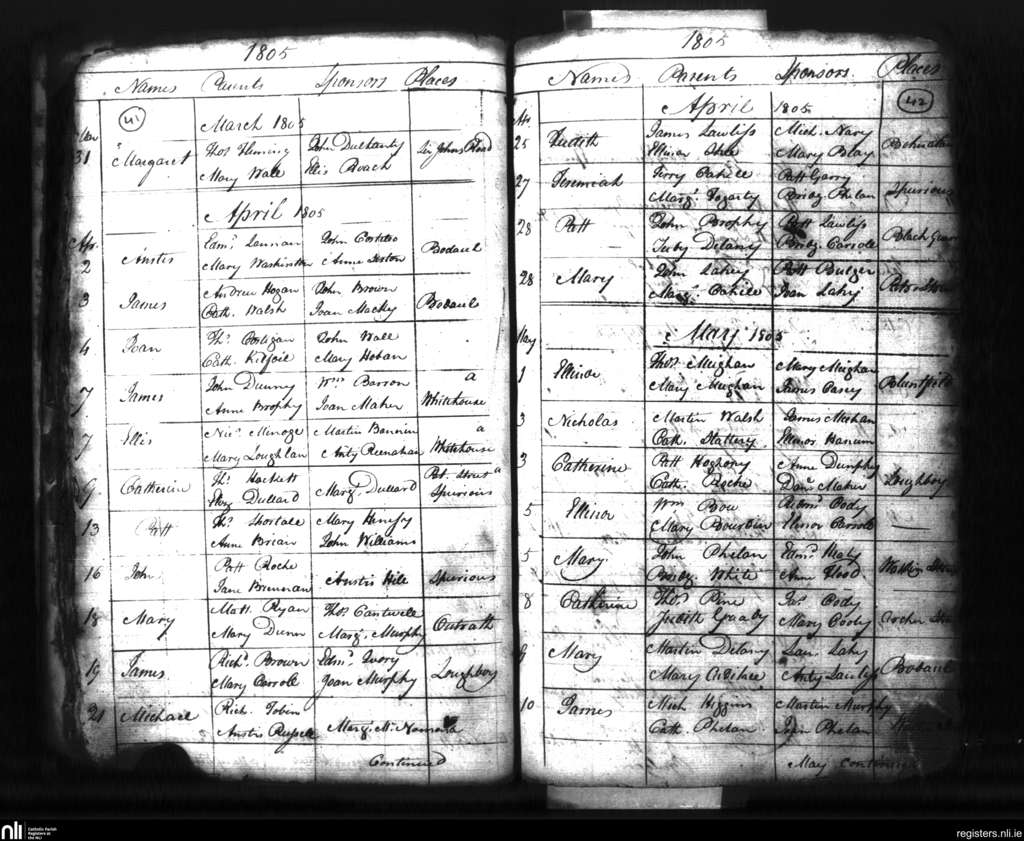 1805
Names Parents Sponsors Places
41
March 1805
31 Margaret Thos Fleming John Sir Johns Road
Mary Wall Ellis Roach
April 1805
Apr. Edmd Lannan John Costello Bodaul
2 Anstis Mary Washington Anne
3 James Andrew Hogan John Brown Bodaul
Cath. Walsh Joan Macky
4 Joan Thos. Costigan John Wall
Cath. Kilfoile Mary Hoban
7 James John Dunny Wm Barron a
Anne Brophy Joan Maher Whitehouse
7 Ellis Nics. Minoge Martin Bannin a
Mary Loughlan Anty Reenahan Whitehouse
9 Catherine Thos. Hackett Margt. Dullard Pat. Street a
Dullard Spurious
13 Patt Thos. Shortall Mary
Anne Brian John Williams
16 John Patt Roche Anstis Hill Spurious
Jane Brennan
18 Mary Matt. Ryan Thos. Cantwell Outrath
Mary Dunn Margt. Murphy
19 James Richd. Brown Edmd. Ivory Loughboy
Mary Carroll Joan Murphy
21 Michael Rich. Tobin Margt. McNamara
Anstis Russell
Continued
1805
Names Parents Sponsors Places
42
April 1805
25 Judith James Lawliss Mich. Nary
Mary Blay
27 Jeremiah Jerry Cahill Patt Garry Spurious
Margt. Fogarty Bridg. Phelan
28 Patt John Brophy Patt Lawliss Black
Judy Delany Bridg. Carroll
28 Mary John Lahey Patt Bulger
Margt. Cahill Joan Lahy
May May 1805
1 Ellinor Thos. Meighan Mary Meighan Bluntfield
Mary Meighan James Casey
3 Nicholas Martin Walsh James Meehan
Cath. Slattery Ellinor
3 Catherine Patt Anne Dunphy Loughboy
Cath. Roche Danl. Maher
5 Ellinor Wm Bow Edmd. Cody
Mary Bourbin Elinor Carroll
5 Mary John Phelan Edmd. Healy
Bridg. White Anne Flood
8 Catherine Thos. Pine Jas. Cody Archer
Judith Mary Cody
9 Mary Martin Delany Lau. Lahy Bodaul
Mary Anty Lawliss
10 James Mich Higgins Martin Murphy
Cath. Phelan Phelan
May continued
nli Catholic Parish
Registers at
the NLI
registers.nli.ie